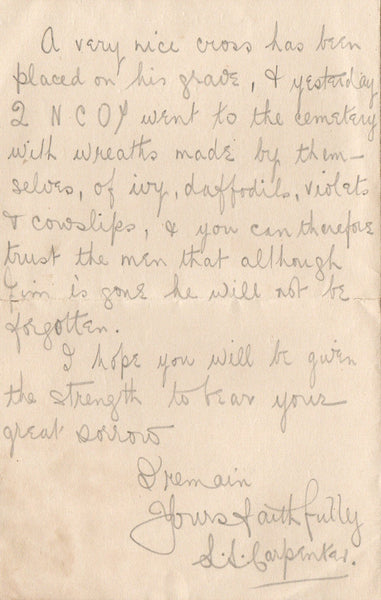 A very nice cross has been
placed on his grave, & yesterday
2 N C Os went to the cemetery
with wreaths made by them-
selves, of ivy, daffodils, violets
& cowslips, & you can therefore
trust the men that although
Jim is gone he will not be
forgotten.
I hope you will be given
the strength to bear your
great sorrow
I remain
Yours faithfully
S.S. Carpenter.